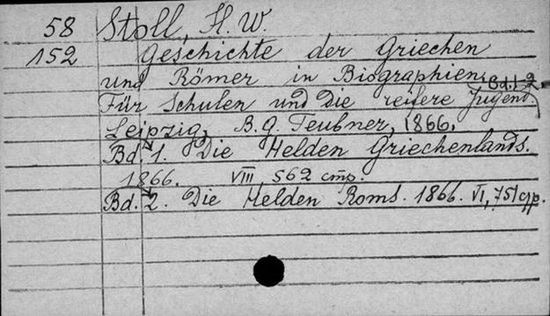 58 Stoll, H. W.
152 Geschichte der Griechen
und Römer in Biographien. Bd. 1-2
Für Schulen und die reifere Jugend.
Leipzig, B. G. Teubner, 1866.
Bd. 1. Die Helden Griechenlands.
1866. VIII 562 стр.
Bd. 2. Die Helden Roms. 1866. VI, 751 стр.